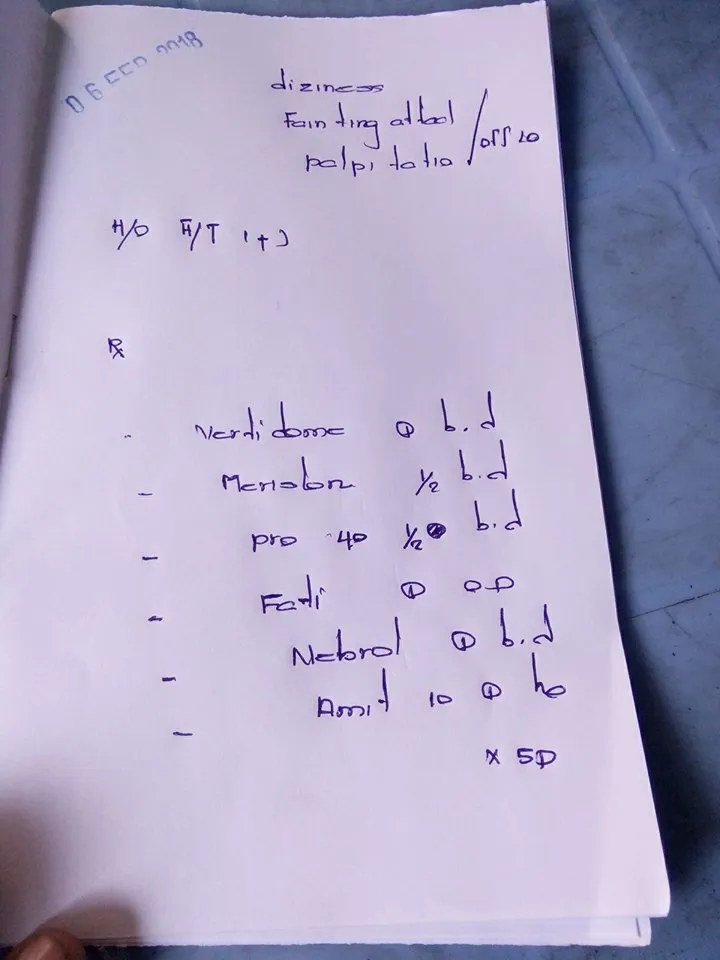 06 FEB 2018
diziness
Fainting attack
palpitatio / off 20
H/O H/T (+)
Rx
- Vertidome ① b.d
- Merislon ½ b.d
- pro 40 ½ b.d
- Fedi ① OD
- Nebrol ① b.d
- Amit 10 ① ho
x 5D